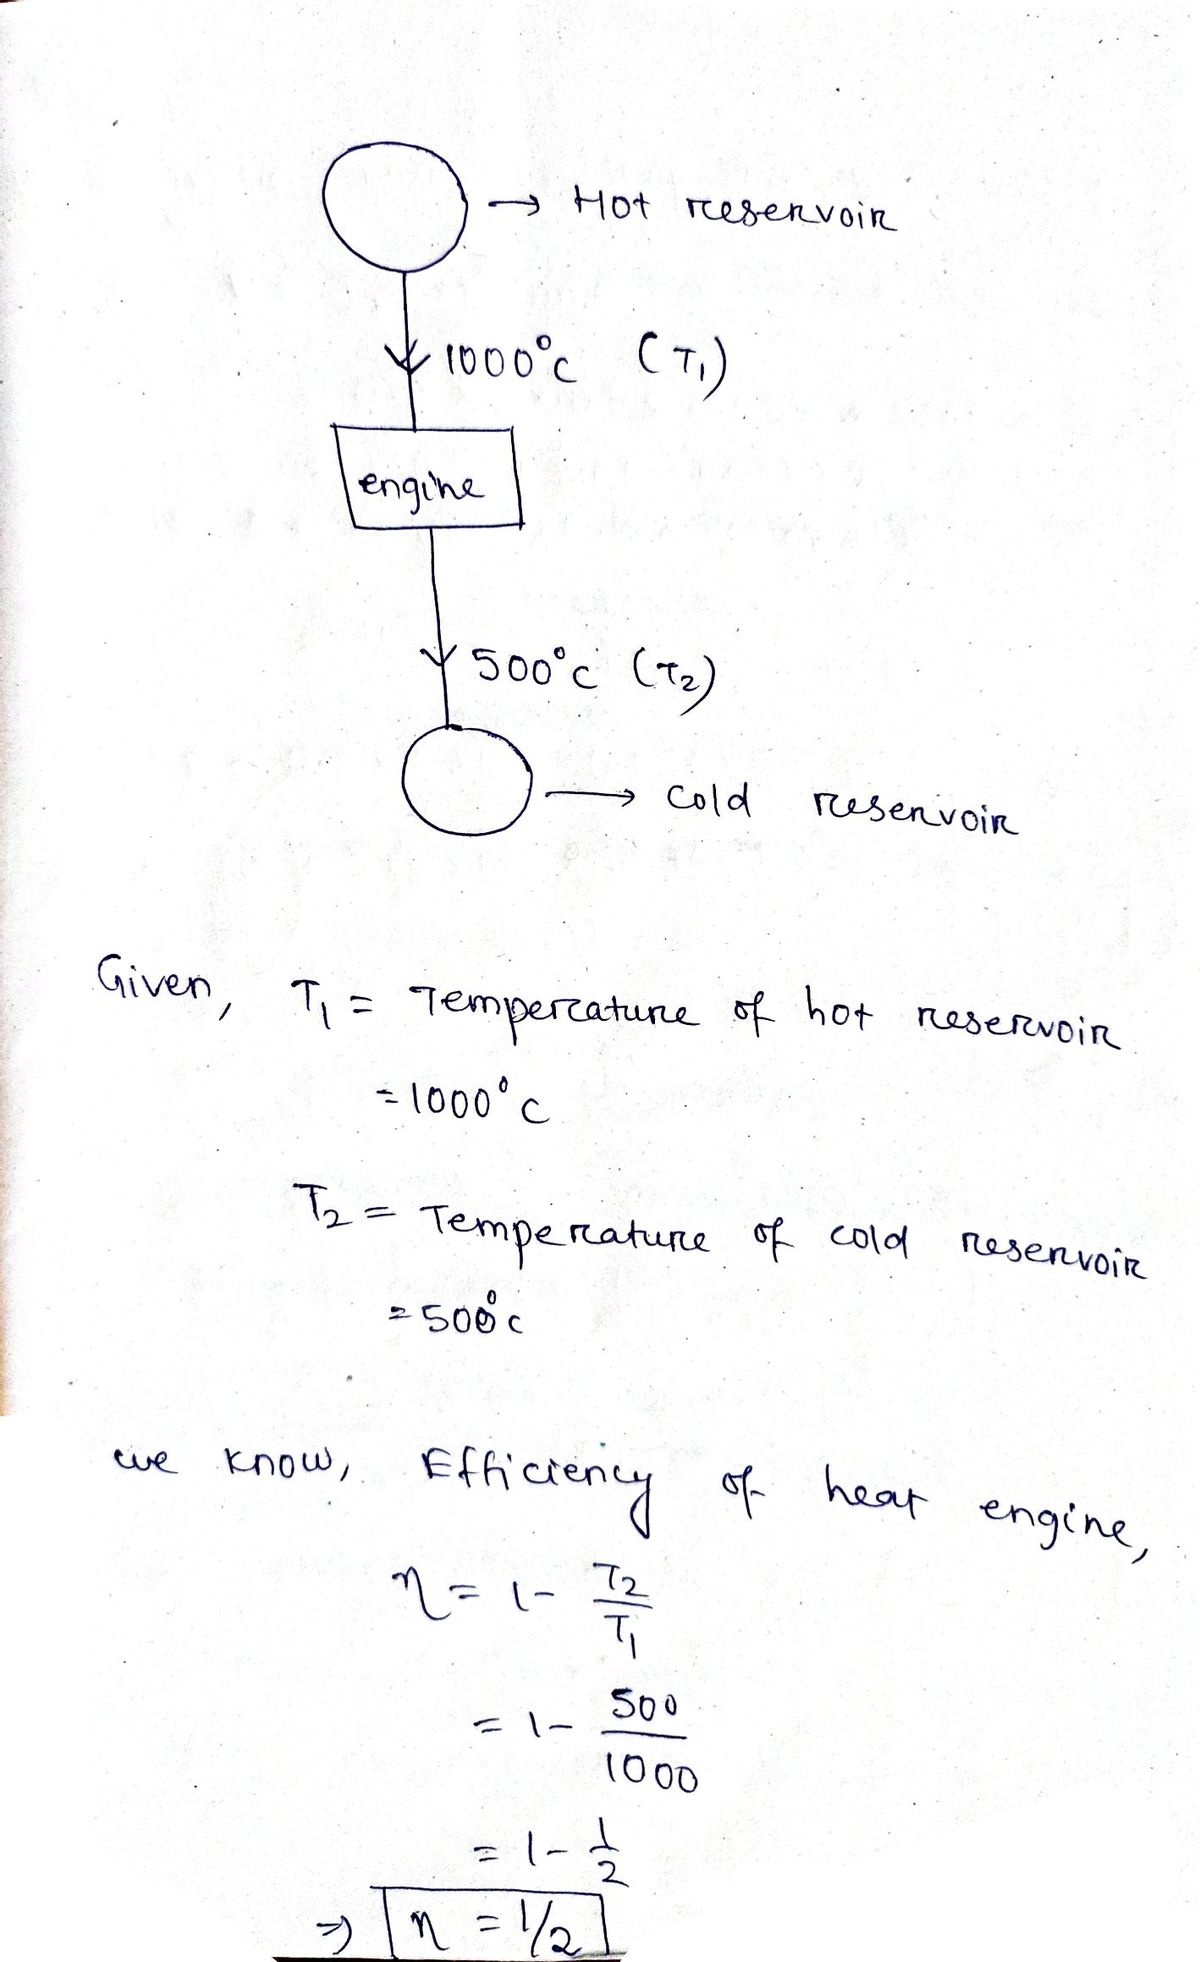 → Hot reservoir
1000°C (T₁)
engine
500°C (T₂)
→ Cold reservoir
Given, T₁ = Temperature of hot reservoir
= 1000°C
T₂ = Temperature of cold reservoir
= 500°C
we know, Efficiency of heat engine,
η = 1 - T₂/T₁
= 1 - 500/1000
= 1 - 1/2
⇒ η = 1/2